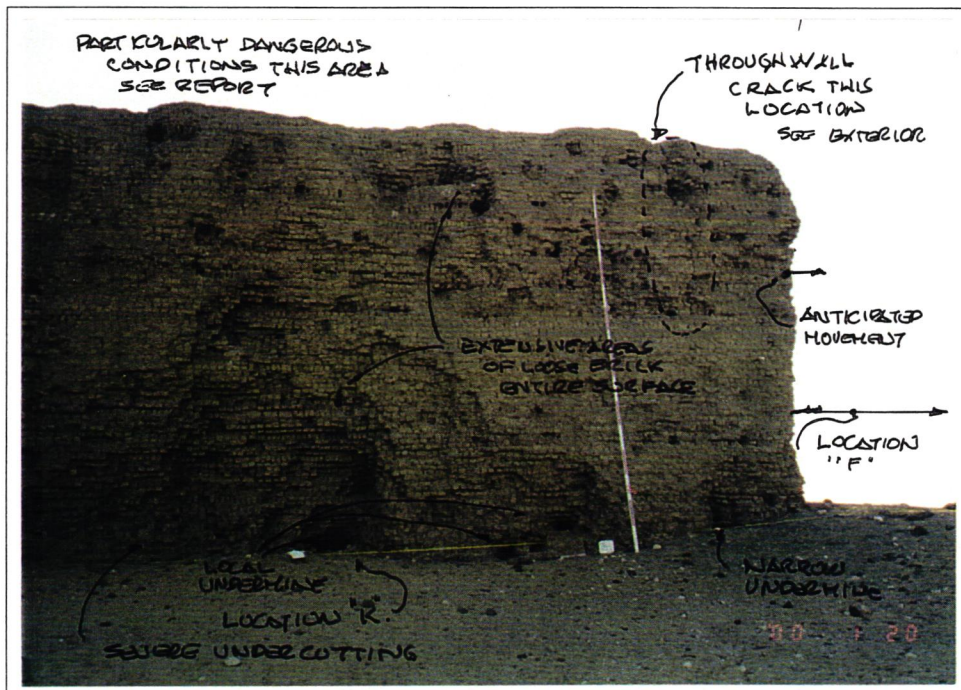 PARTICULARLY DANGEROUS
CONDITIONS THIS AREA
SEE REPORT
THROUGH WALL
CRACK THIS
LOCATION
SEE EXTERIOR
ANTICIPATED
MOVEMENT
EXTENSIVE AREAS
OF LOOSE BRICK
ENTIRE SURFACE
LOCATION
"F"
LOCAL
UNDERMINE
LOCATION "K"
SEVERE UNDERCUTTING
NARROW
UNDERMINE
'00 1 20